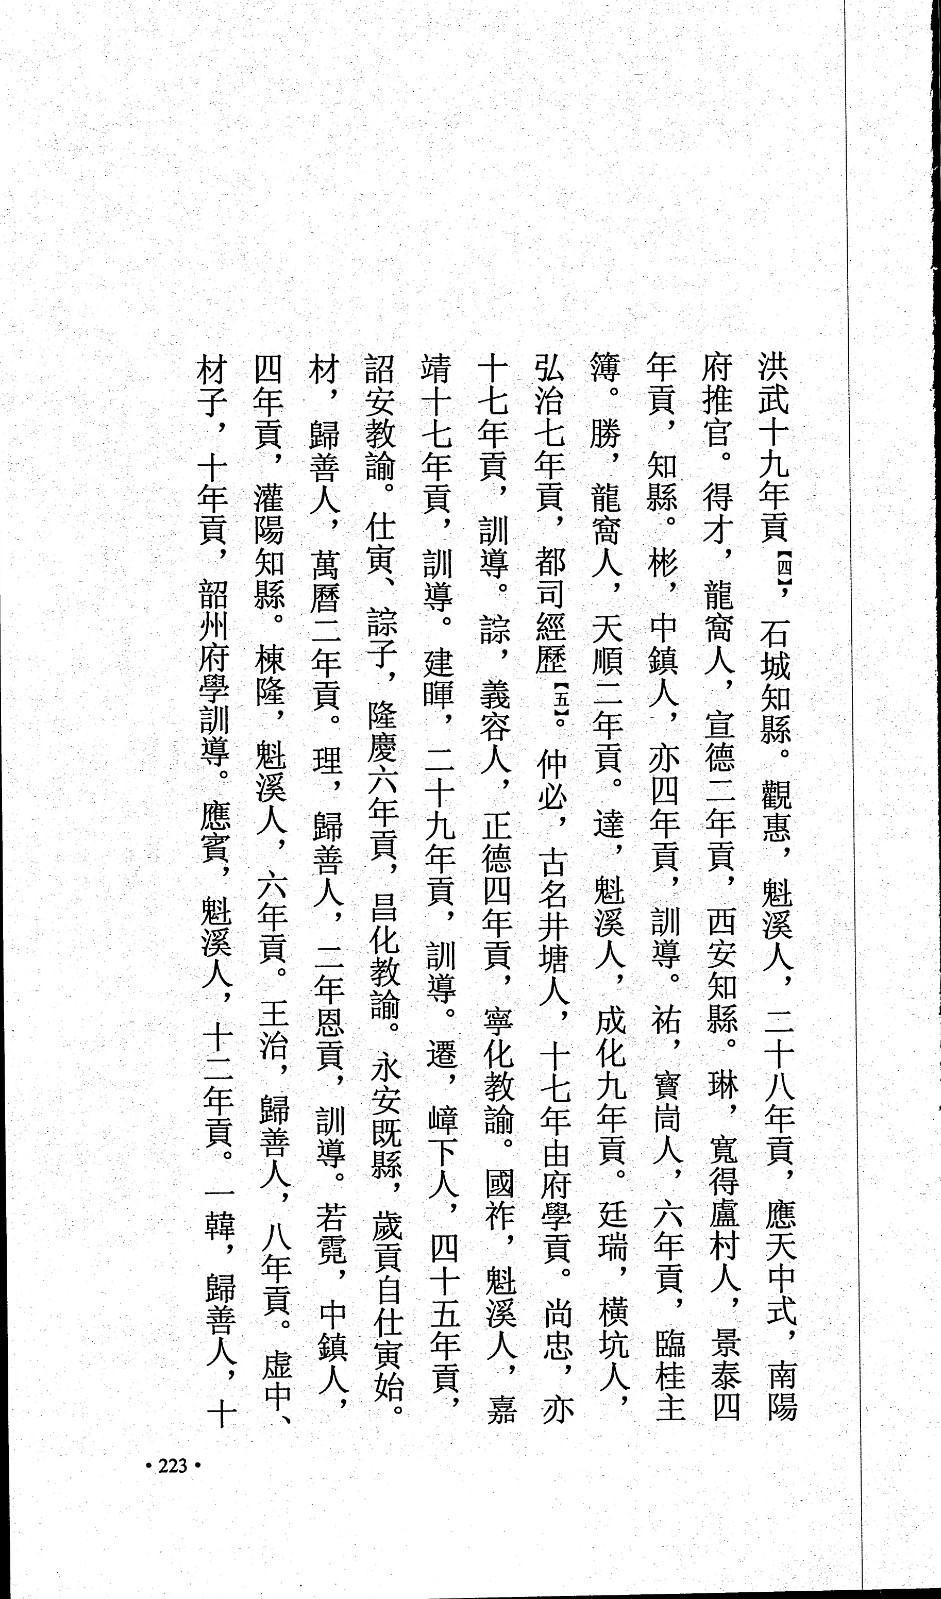 洪武十九年貢【四】，石城知縣。觀惠，魁溪人，二十八年貢，應天中式，南陽
府推官。得才，龍窩人，宣德二年貢，西安知縣。琳，寬得盧村人，景泰四
年貢，知縣。彬，中鎮人，亦四年貢，訓導。祐，寶崗人，六年貢，臨桂主
簿。勝，龍窩人，天順二年貢。達，魁溪人，成化九年貢。廷瑞，橫坑人，
弘治七年貢，都司經歷【五】。仲必，古名井塘人，十七年由府學貢。尚忠，亦
十七年貢，訓導。誴，義容人，正德四年貢，寧化教諭。國祚，魁溪人，嘉
靖十七年貢，訓導。建暉，二十九年貢，訓導。遷，嶂下人，四十五年貢，
詔安教諭。仕寅、誴子，隆慶六年貢，昌化教諭。永安既縣，歲貢自仕寅始。
材，歸善人，萬曆二年貢。理，歸善人，二年恩貢，訓導。若霓，中鎮人，
四年貢，灌陽知縣。棟隆，魁溪人，六年貢。王治，歸善人，八年貢。虛中、
材子，十年貢，韶州府學訓導。應賓，魁溪人，十二年貢。一韓，歸善人，十
·223·